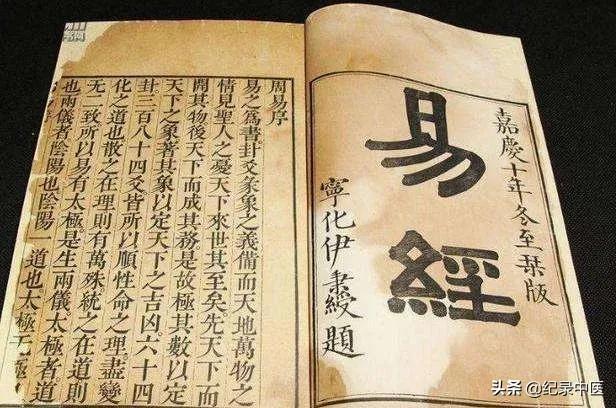 嘉慶十年冬至栞版
易經
寧化伊秉綬題
周易序
易之爲書卦爻彖象之義備而天地萬物之
情見聖人之憂天下來世其至矣先天下而
開其物後天下而成其務是故極其數以定
天下之象著其象以定天下之吉凶六十四
卦三百八十四爻皆所以順性命之理盡變
化之道也散之在理則有萬殊統之在道則
无一致所以易有太極是生兩儀太極者道
也兩儀者陰陽也陰陽一道也太極无極
头条 @纪录中医